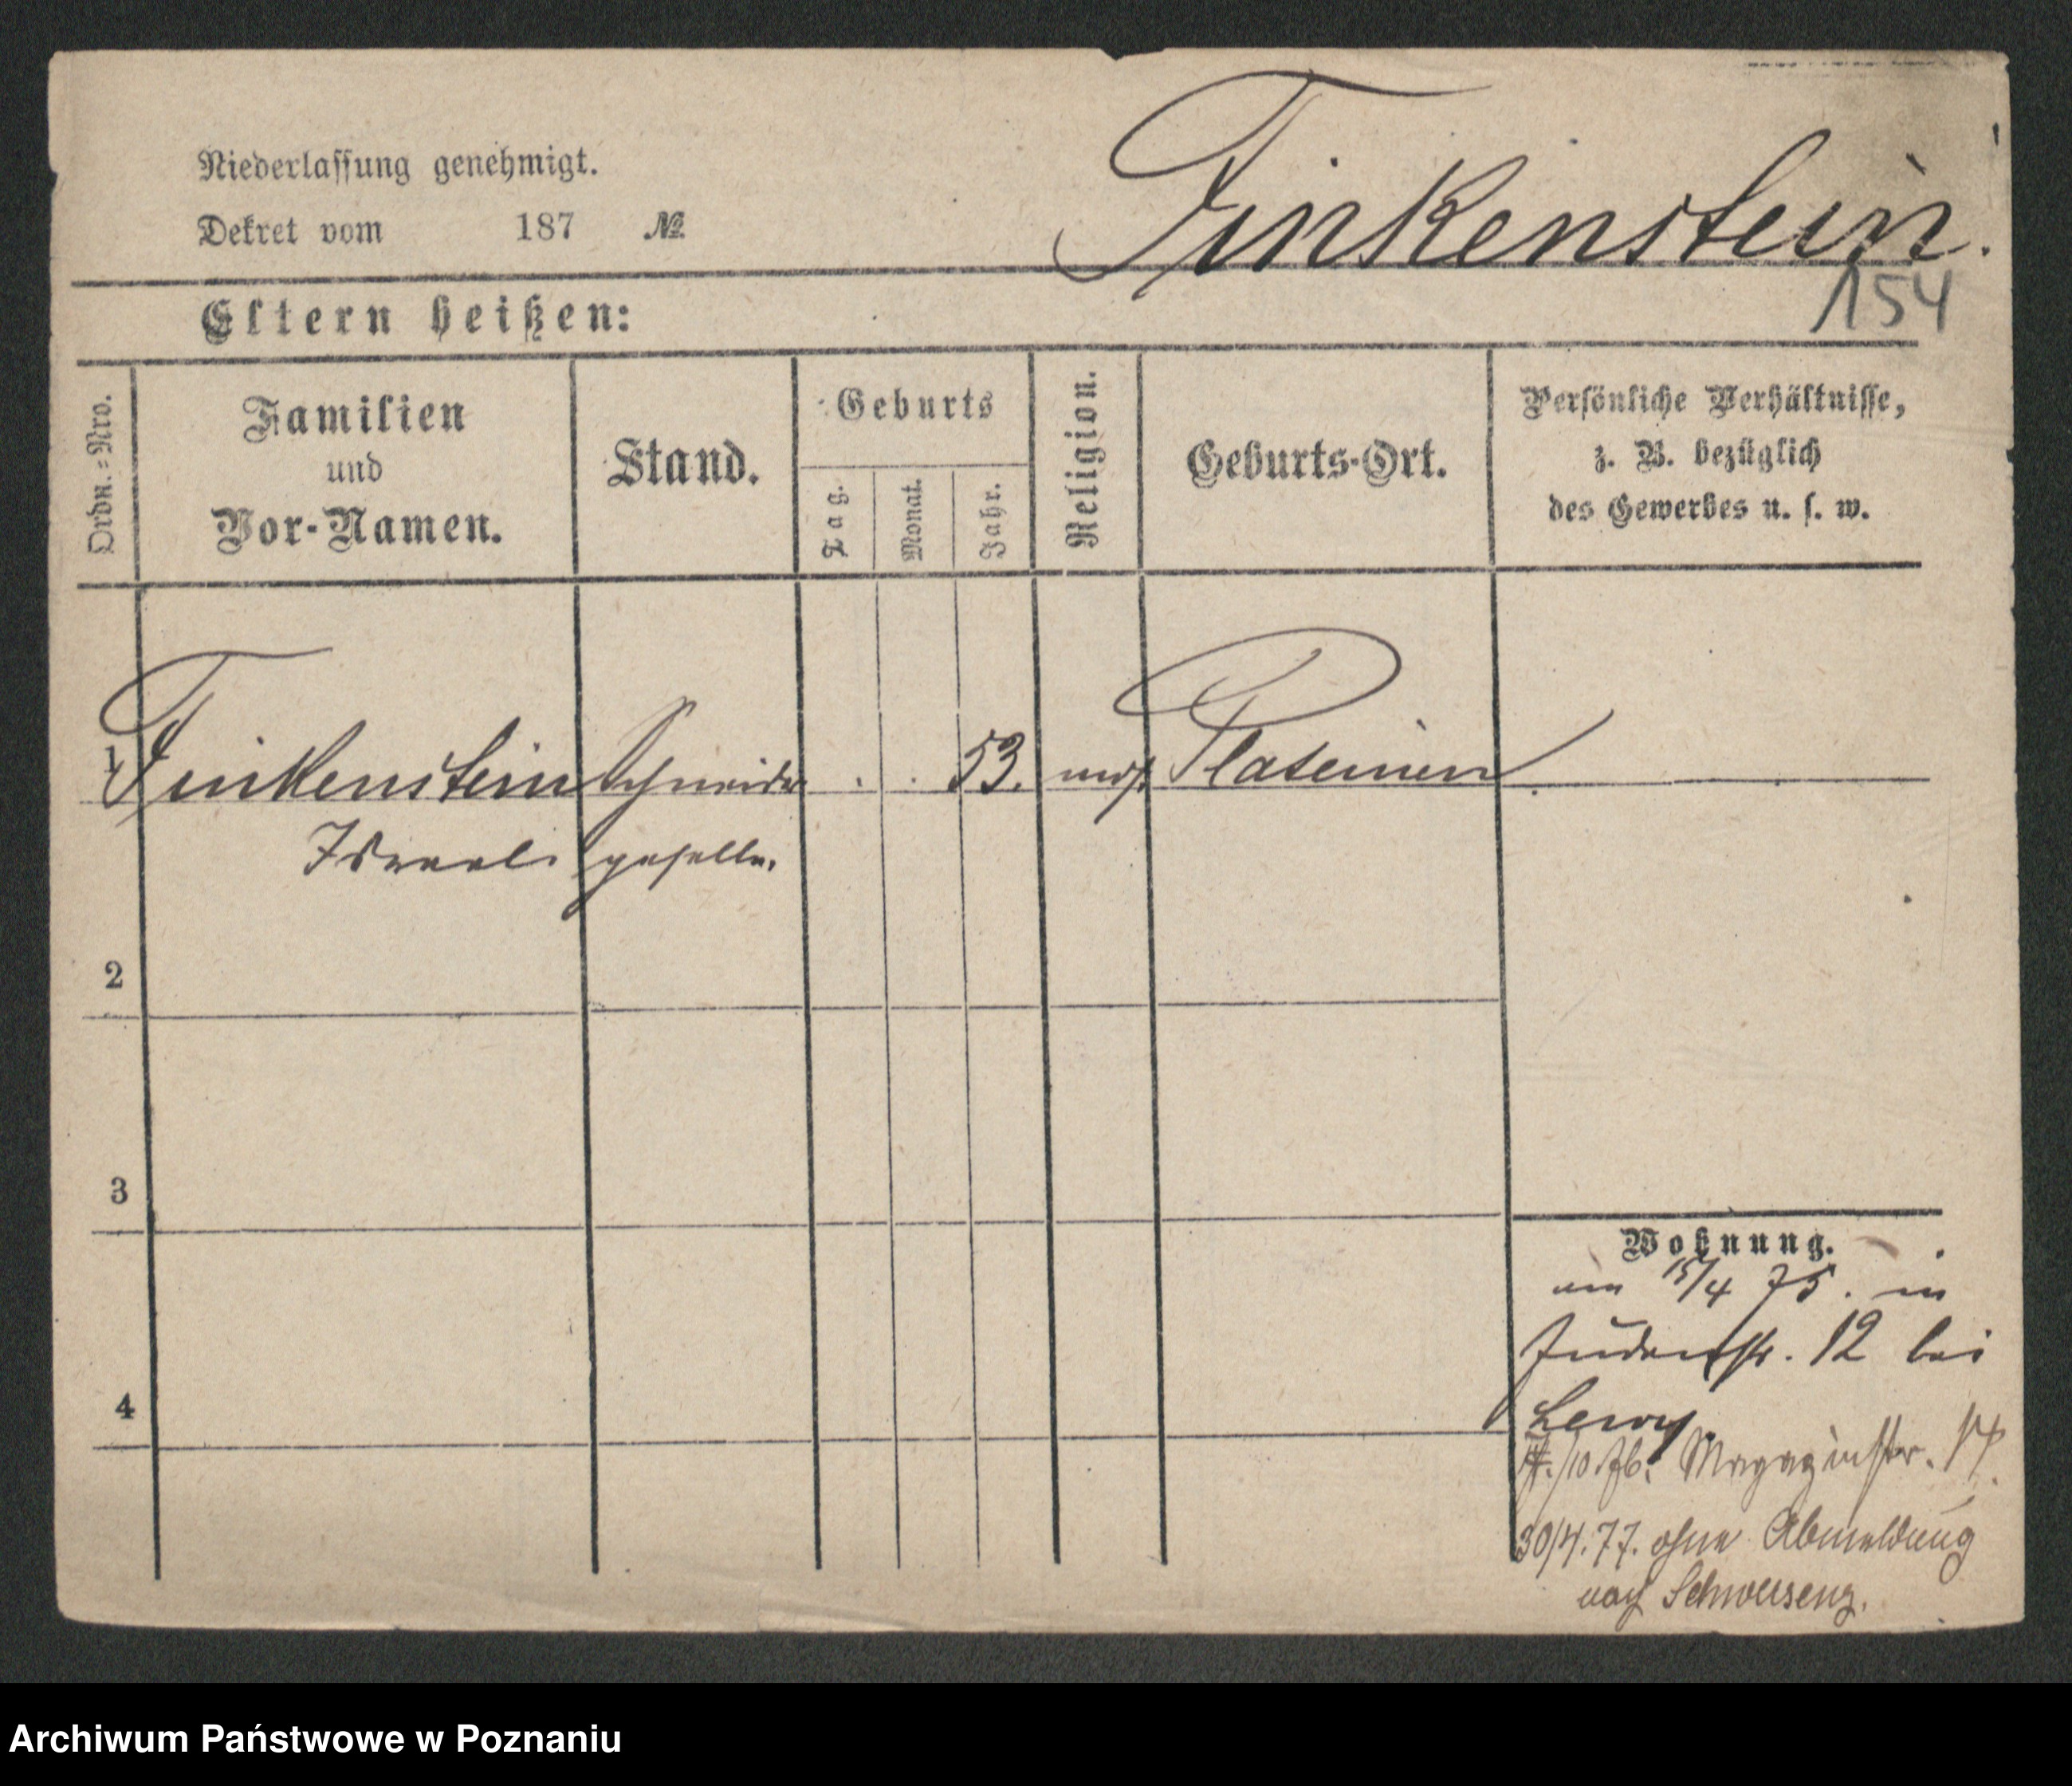 Finkenstein.
Niederlassung genehmigt.
Dekret vom 187 №
154
Eltern heißen:
Ordn.=Nro.
Familien
und
Vor-Namen.
Stand.
Geburts
Tag.
Monat.
Jahr.
Religion.
Geburts-Ort.
Persönliche Verhältnisse,
z. B. bezüglich
des Gewerbes u. s. w.
1 Finkenstein Schneider . . 53. mos. Plateinen
Israel geselle.
2
3
4
Wohnung.
am 15/4 75. in
Judenstr. 12 bei
Lewy.
/10. 76. Magazinstr. 14.
30/4. 77. ohne Abmeldung
nach Schwersenz.
Archiwum Państwowe w Poznaniu